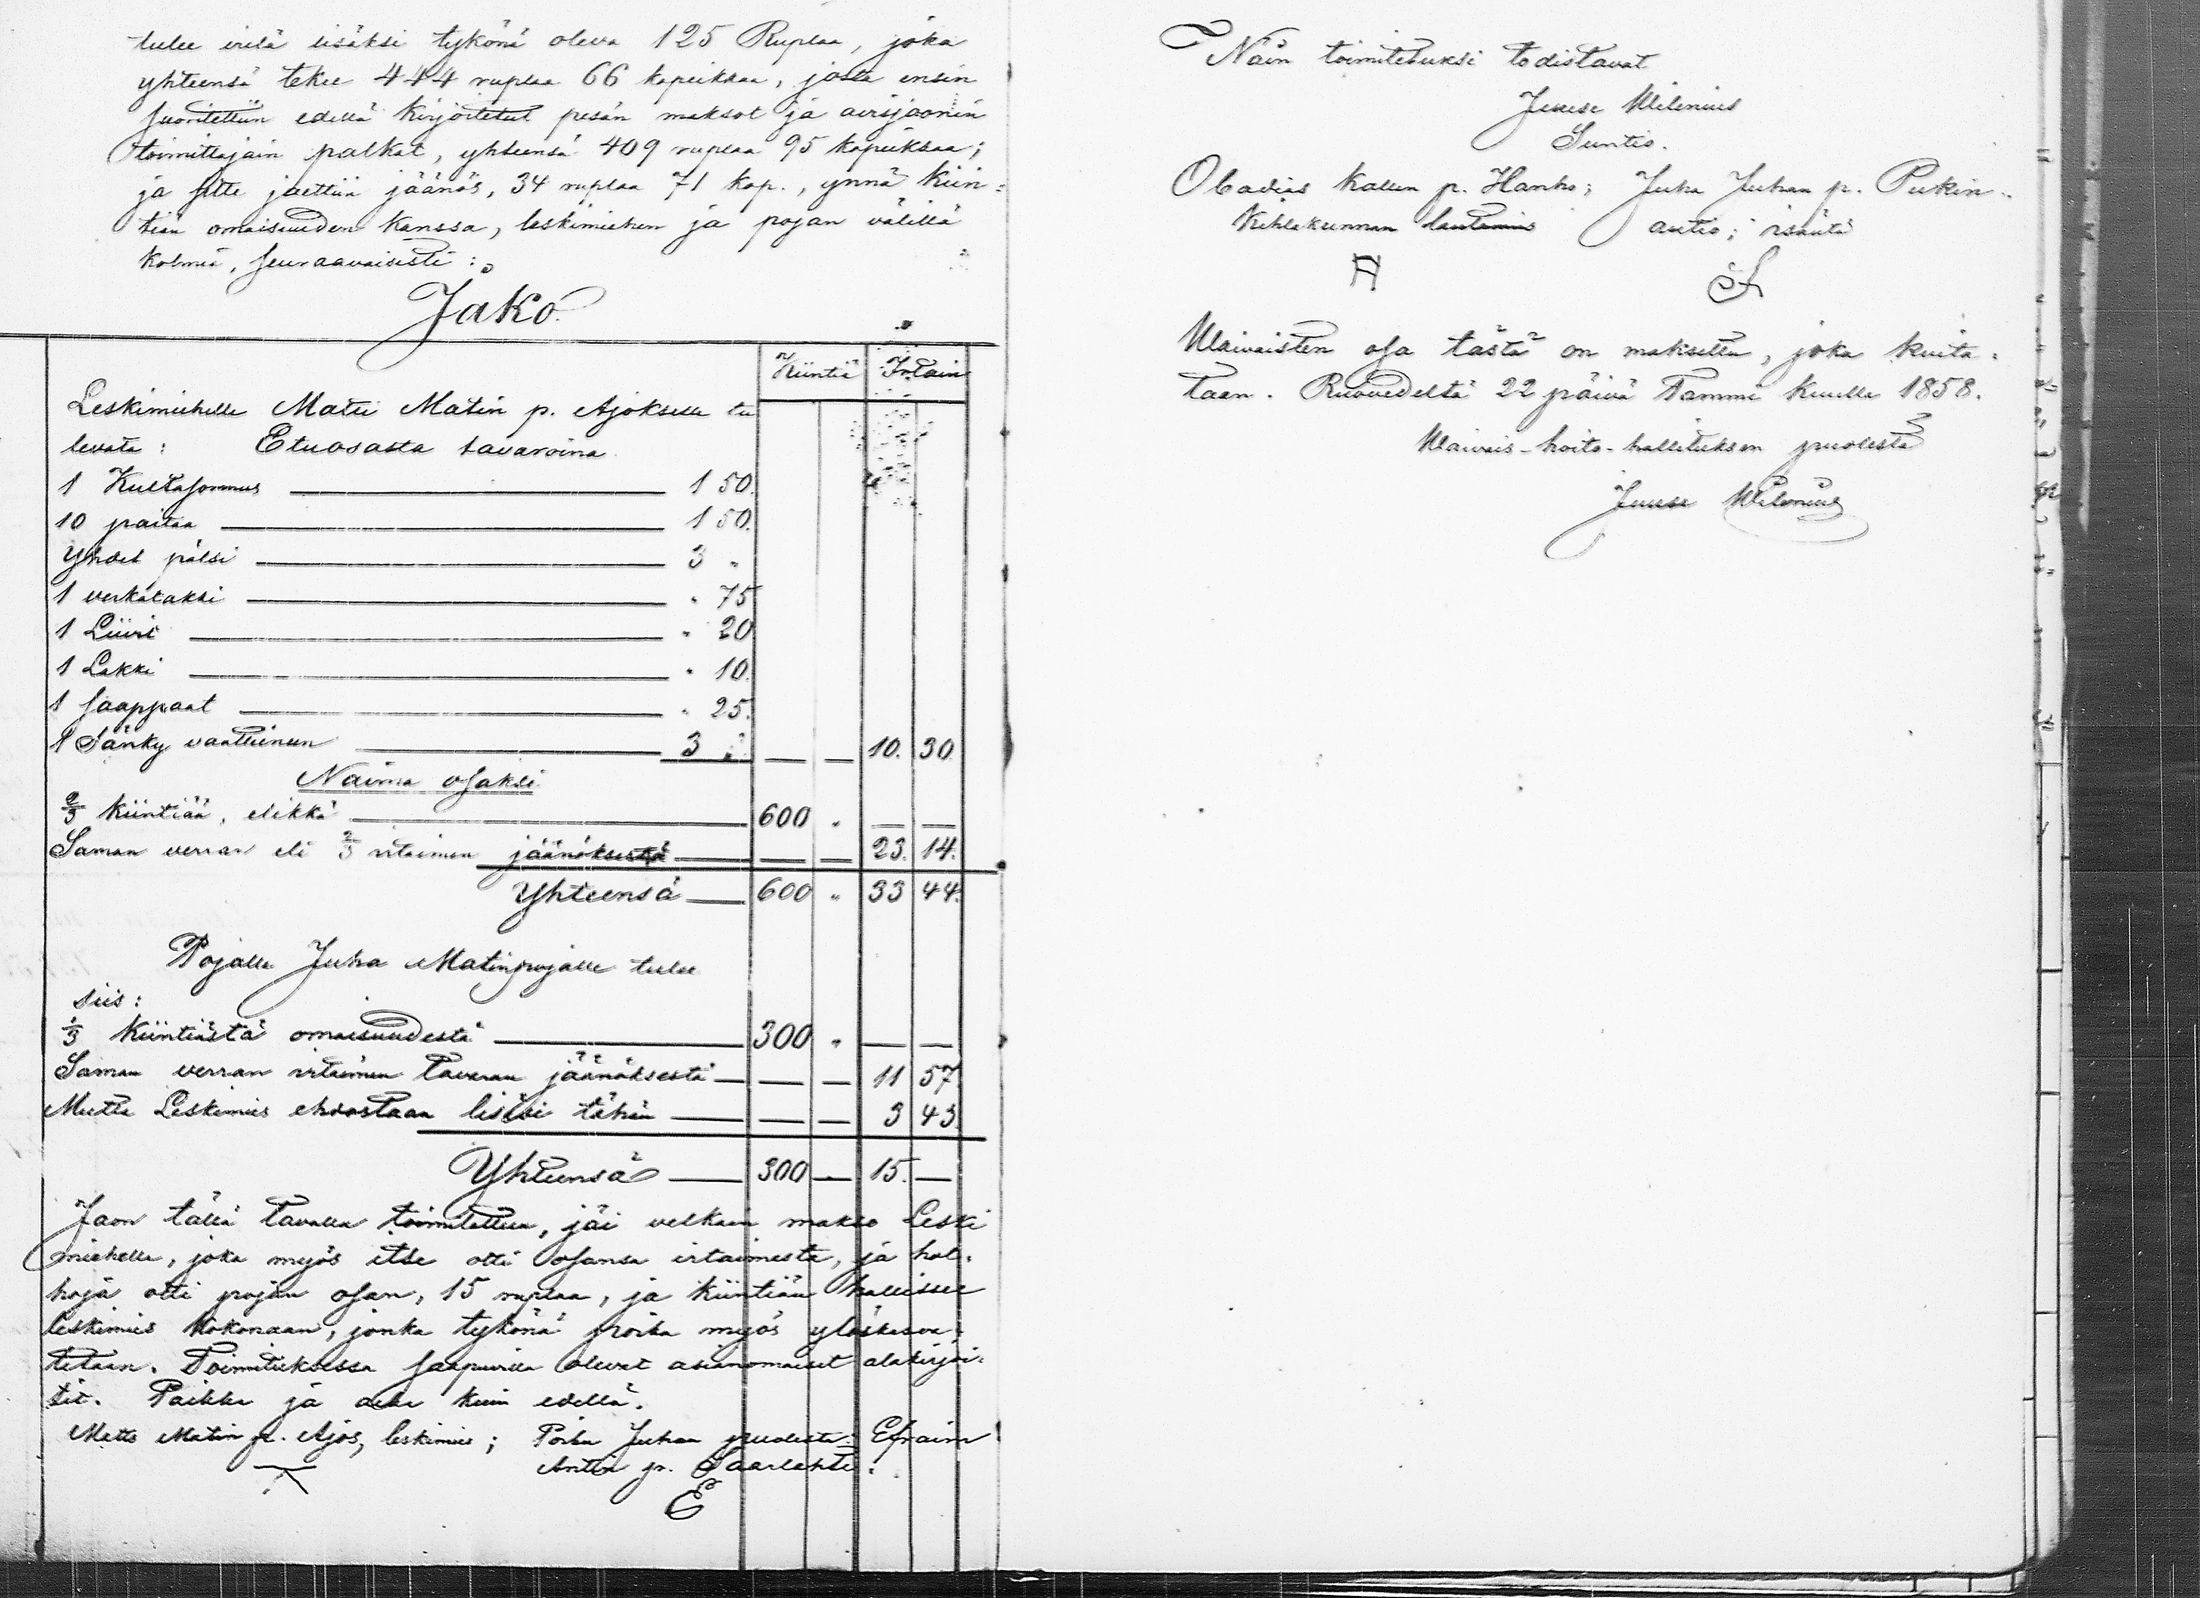 tulee vielä lisäksi tykönä oleva 125 Ruplaa, joka
yhteensä tekee 444 ruplaa 66 kopeikkaa, josta ensin
suoritettiin edellä kirjoitetut pesän maksot ja
toimittajain palkat, yhteensä 409 ruplaa 95 kopeikkaa;
ja sitte jaettiin jäänös, 34 ruplaa 71 kop., ynnä kiin=
tiän omaisuuden kanssa, leskimiehen ja pojan välillä
kolmia, seuraavaisesti:
Jako.
Kiintiä Irtain
Leskimiehelle Matti Matin p. Ajokselle tu
levata: Etuosasta tavaroina
1 Kultasormus 1 50.
10 paitaa 1 50.
Yhdet pälsi 3 "
1 verkatakki " 75
1 Liivi " 20
1 Lakki " 10.
1 saappaat " 25.
1 Sänky vaatteineen 3 " — — 10. 30
Naima osaksi
2/3 kiintiää, elikkä 600 " — —
Saman verran eli 2/3 irtaimen jäänöksestä — — 23. 14.
Yhteensä — 600 " 33 44.
Pojalle Juha Matinpojalle tulee
siis:
1/3 kiintiästä omaisuudesta 300 " — —
Saman verran irtaimen tavaran jäänöksestä — — — 11 57
Mutta Leskimies ehdostaan lisäsi tähän — — — 3 43
Yhteensä — 300 — 15. —
Jaon tällä tavalla toimitettua, jäi velkain makso Leski
miehelle, joka myös itse otti osansa irtaimesta, ja hol=
hoja otti pojan osan, 15 ruplaa, ja kiintiän hallissee
leskimies kokonaan, jonka tykönä poika myös ylöskasva=
tetaan. Toimituksessa saapuvilla olevat asianomaiset alakirjoi=
sit. Paikka ja aika kuin edellä.
Matts Matin p. Ajos, leskimies; Poika Juhan puolesta: Efraim
Antin p. Saarlahti.
E
Näin toimitetuksi todistavat
Juuse Wilenius
Suntio.
Obadias Kallen p. Hanho; Juha Juhan p. Pukin=
Kihlakunnan lautamies autio; isäntä
H
Waivaisten osa tästä on maksettu, joka kuita=
taan. Ruovedeltä 22 päivä Tammi kuulla 1858.
Waivais-hoito-hallituksen puolesta
Juuse Wilenius